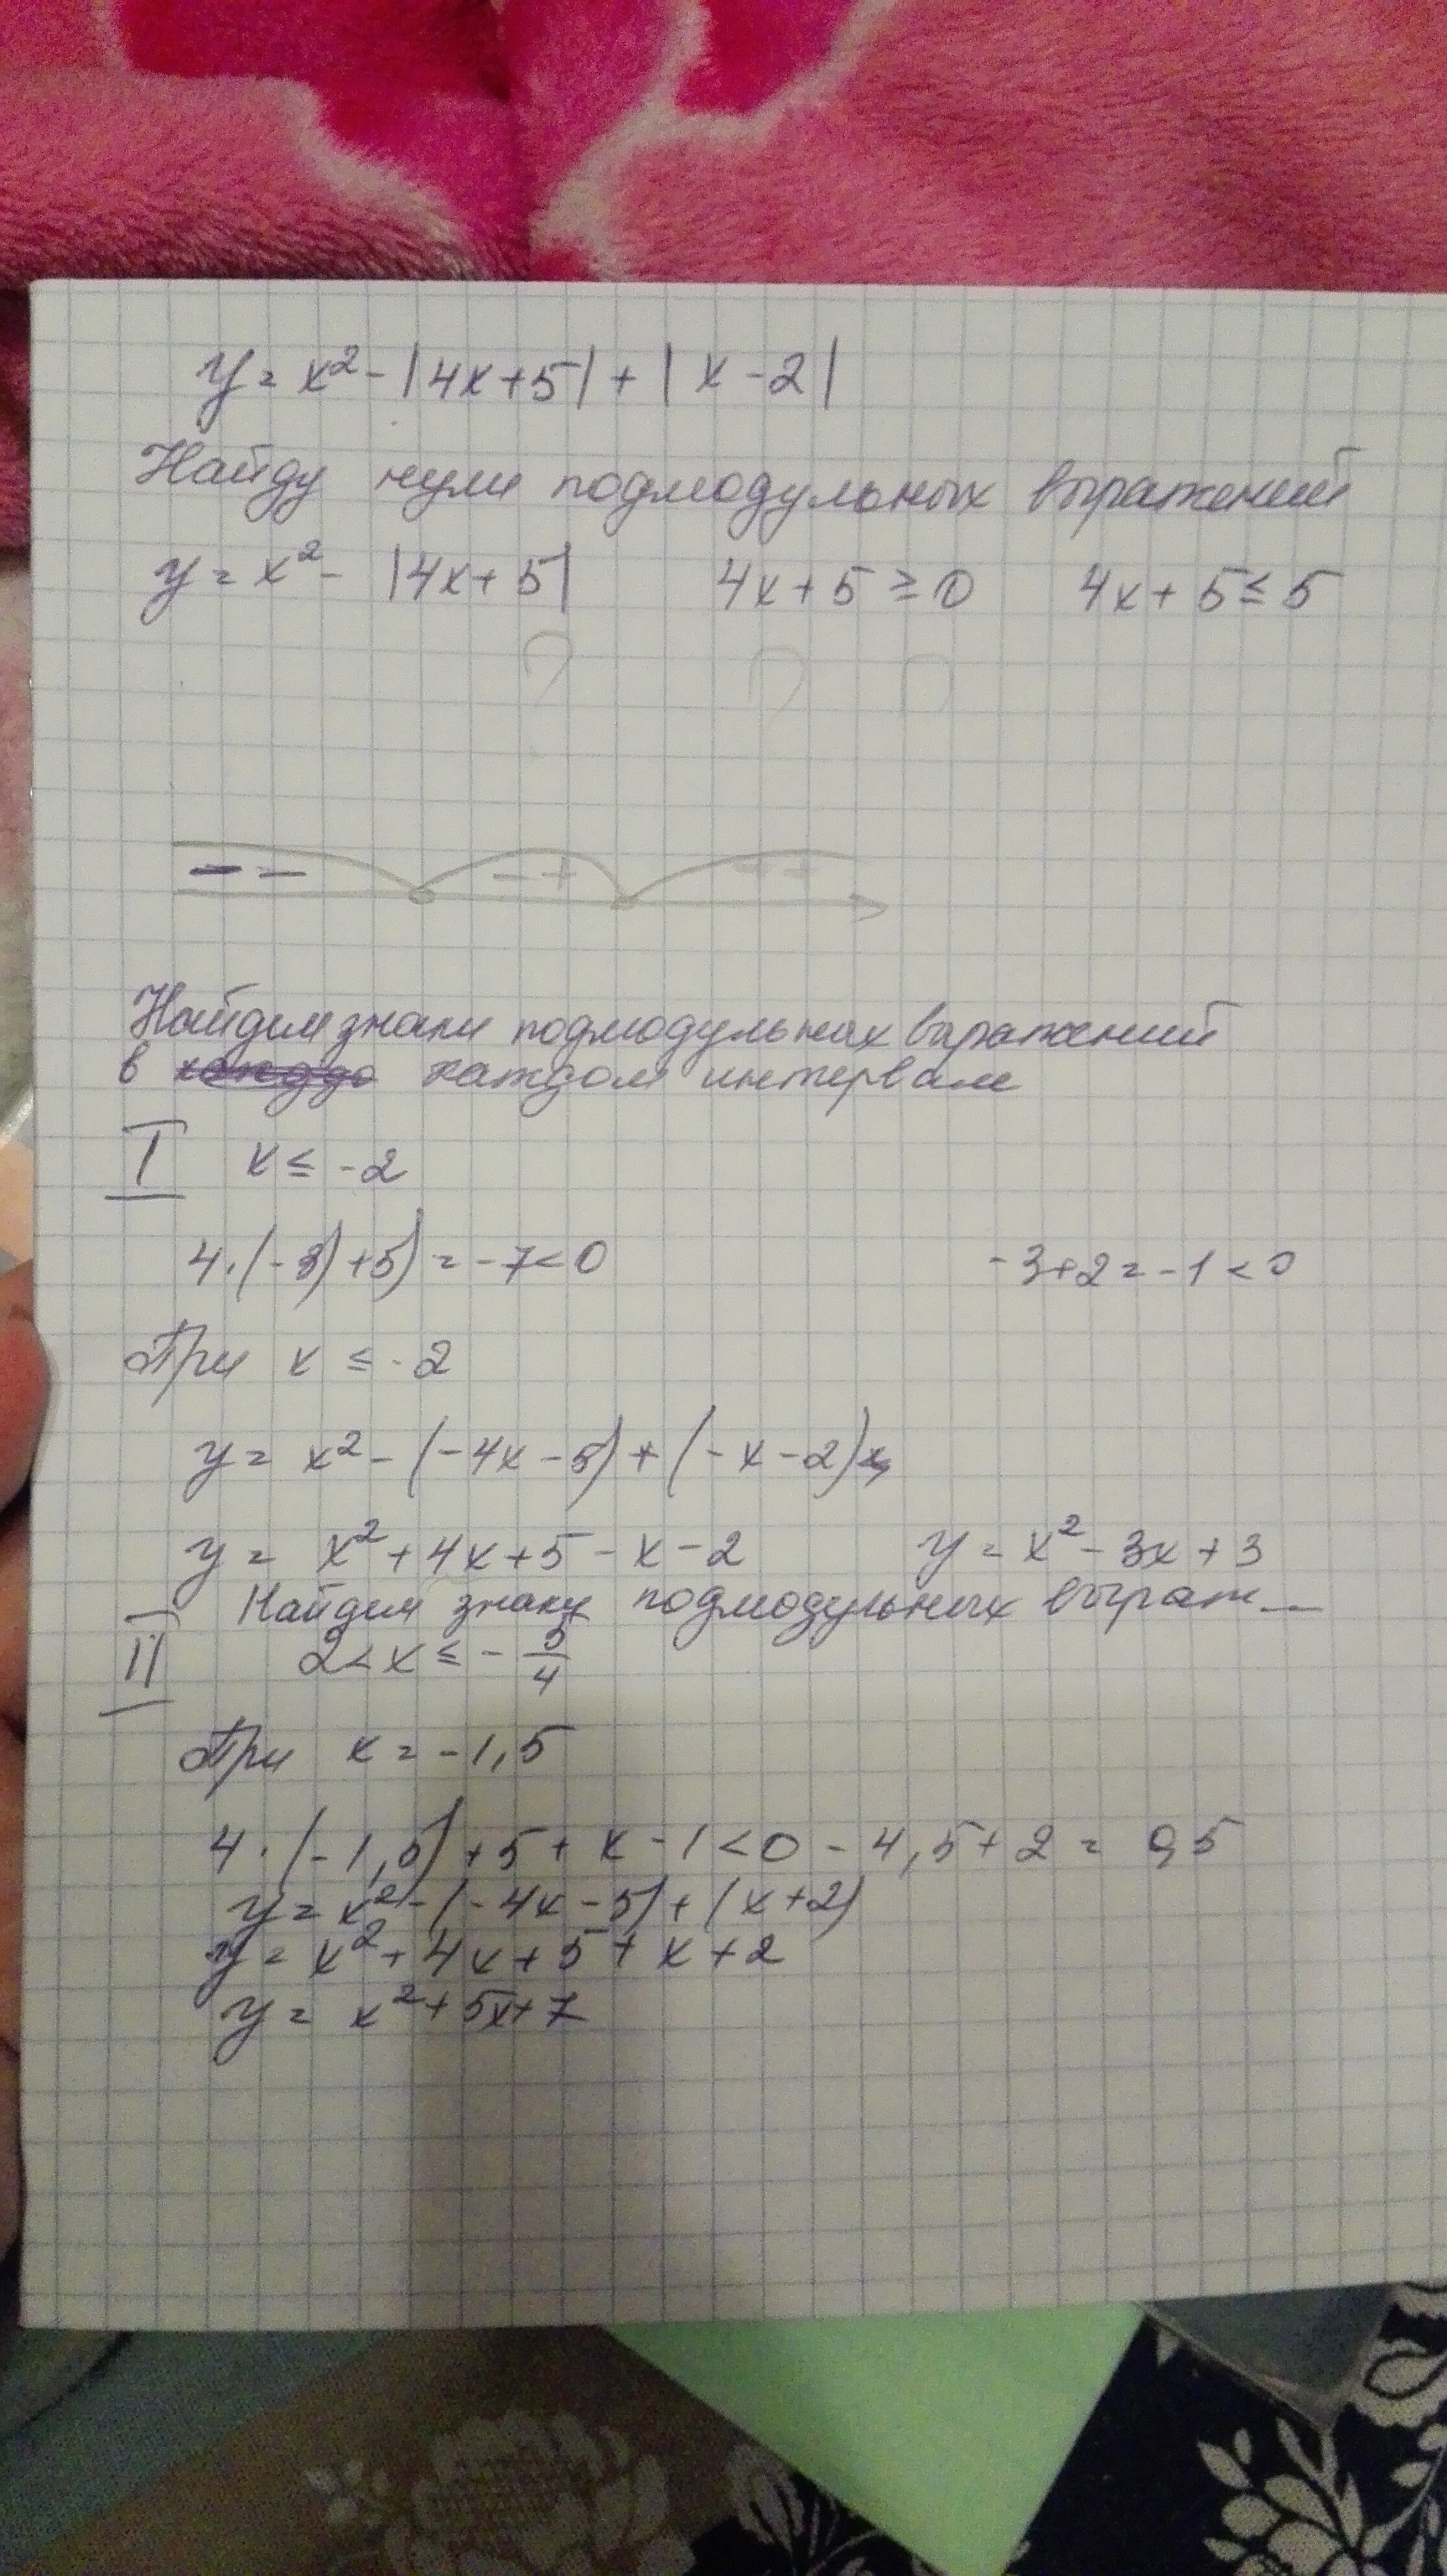 y = x² - |4x+5| + |x - 2|
Найду нули подмодульных выражений
y = x² - |4x+5| 4x+5 ≥ 0 4x+5 ≤ 5
? ?
− − − + + +
Найдем знаки подмодульных выражений
в каждом интервале
I x ≤ -2
4·(-3)+5) = -7<0 -3+2 = -1 < 0
При x ≤ -2
y = x² - (-4x - 5) + (-x - 2)
y = x² + 4x + 5 - x - 2 y = x² - 3x + 3
Найдем знаки подмодульных выраж...
II 2 < x ≤ - 5/4
При x = -1,5
4·(-1,5)+5 + x - 1 < 0 - 4,5 + 2 = 0,5
y = x² - (-4x - 5) + (x+2)
y = x² + 4x + 5 + x + 2
y = x² + 5x + 7